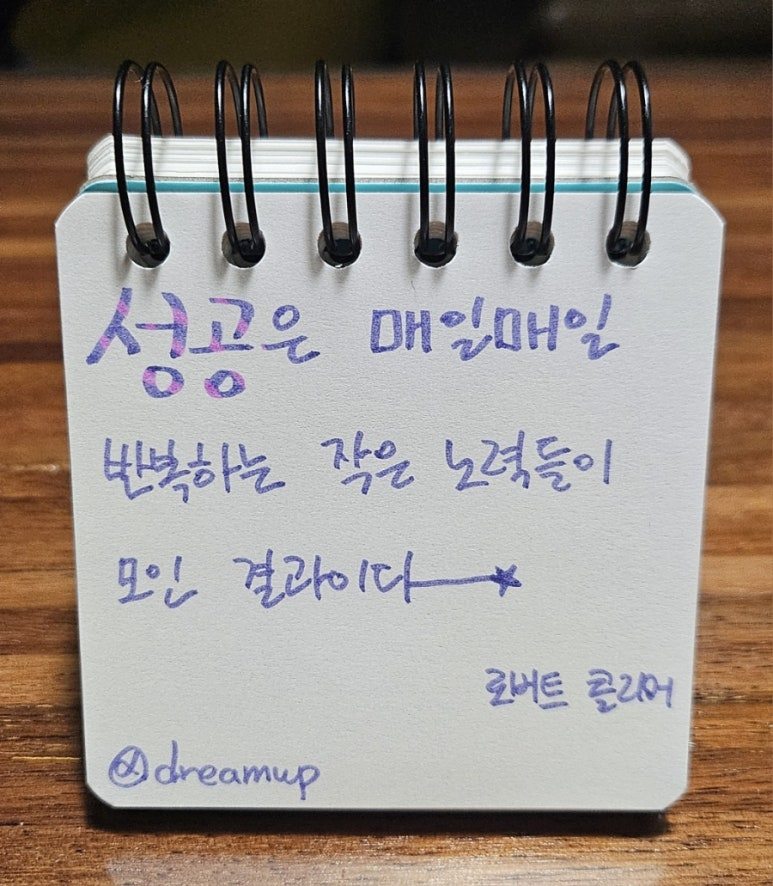 성공은 매일매일
반복하는 작은 노력들이
모인 결과이다
로버트 콜리어
@dreamup